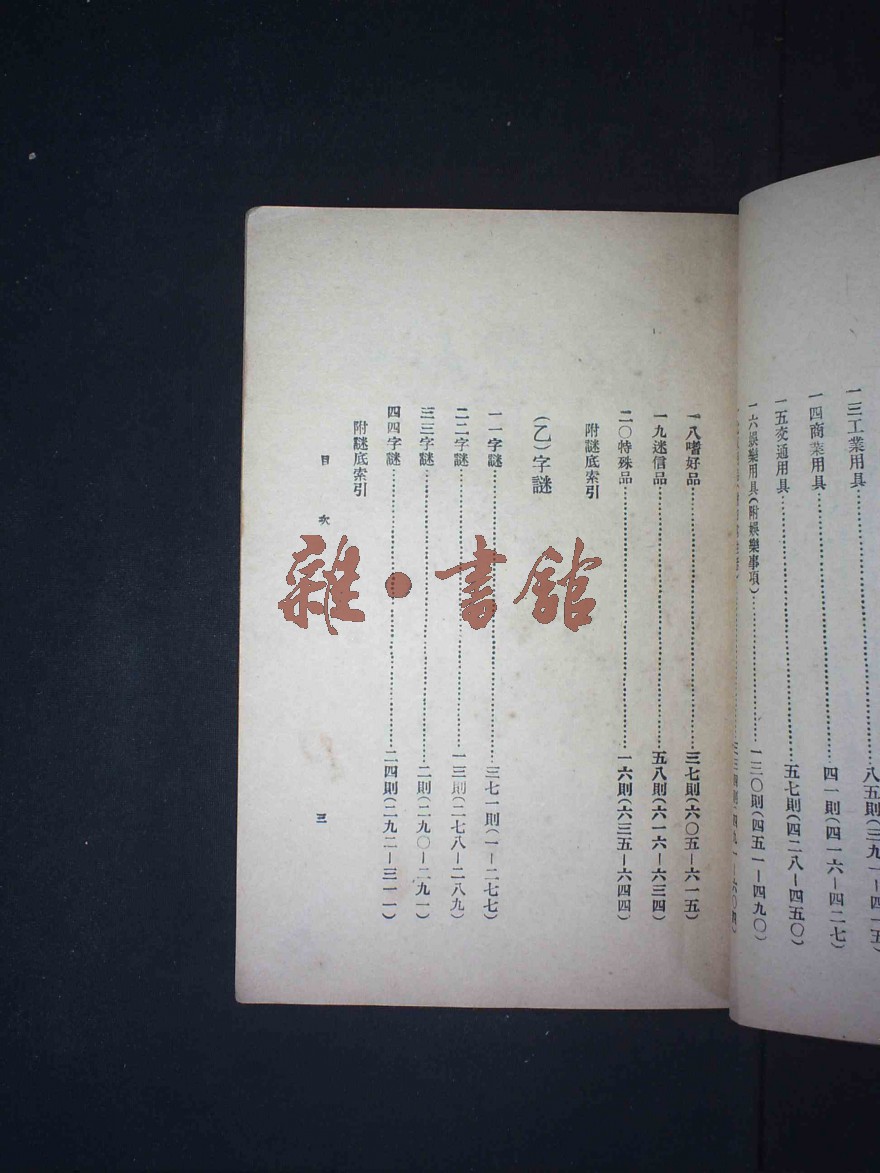 一三工業用具……八五則(三九一—四一五)
一四商業用具……四一則(四一六—四二七)
一五交通用具……五七則(四二八—四五〇)
一六娛樂用具(附娛樂事項)……一三〇則(四五一—四九〇)
一八嗜好品……三七則(六〇五—六一五)
一九迷信品……五八則(六一六—六三四)
二〇特殊品……一六則(六三五—六四四)
附謎底索引
(乙)字謎
一一字謎……三七一則(一—二七七)
二二字謎……一三則(二七八—二八九)
三三字謎……二則(二九〇—二九一)
四四字謎……二四則(二九二—三一一)
附謎底索引
目次
三
雜·書館